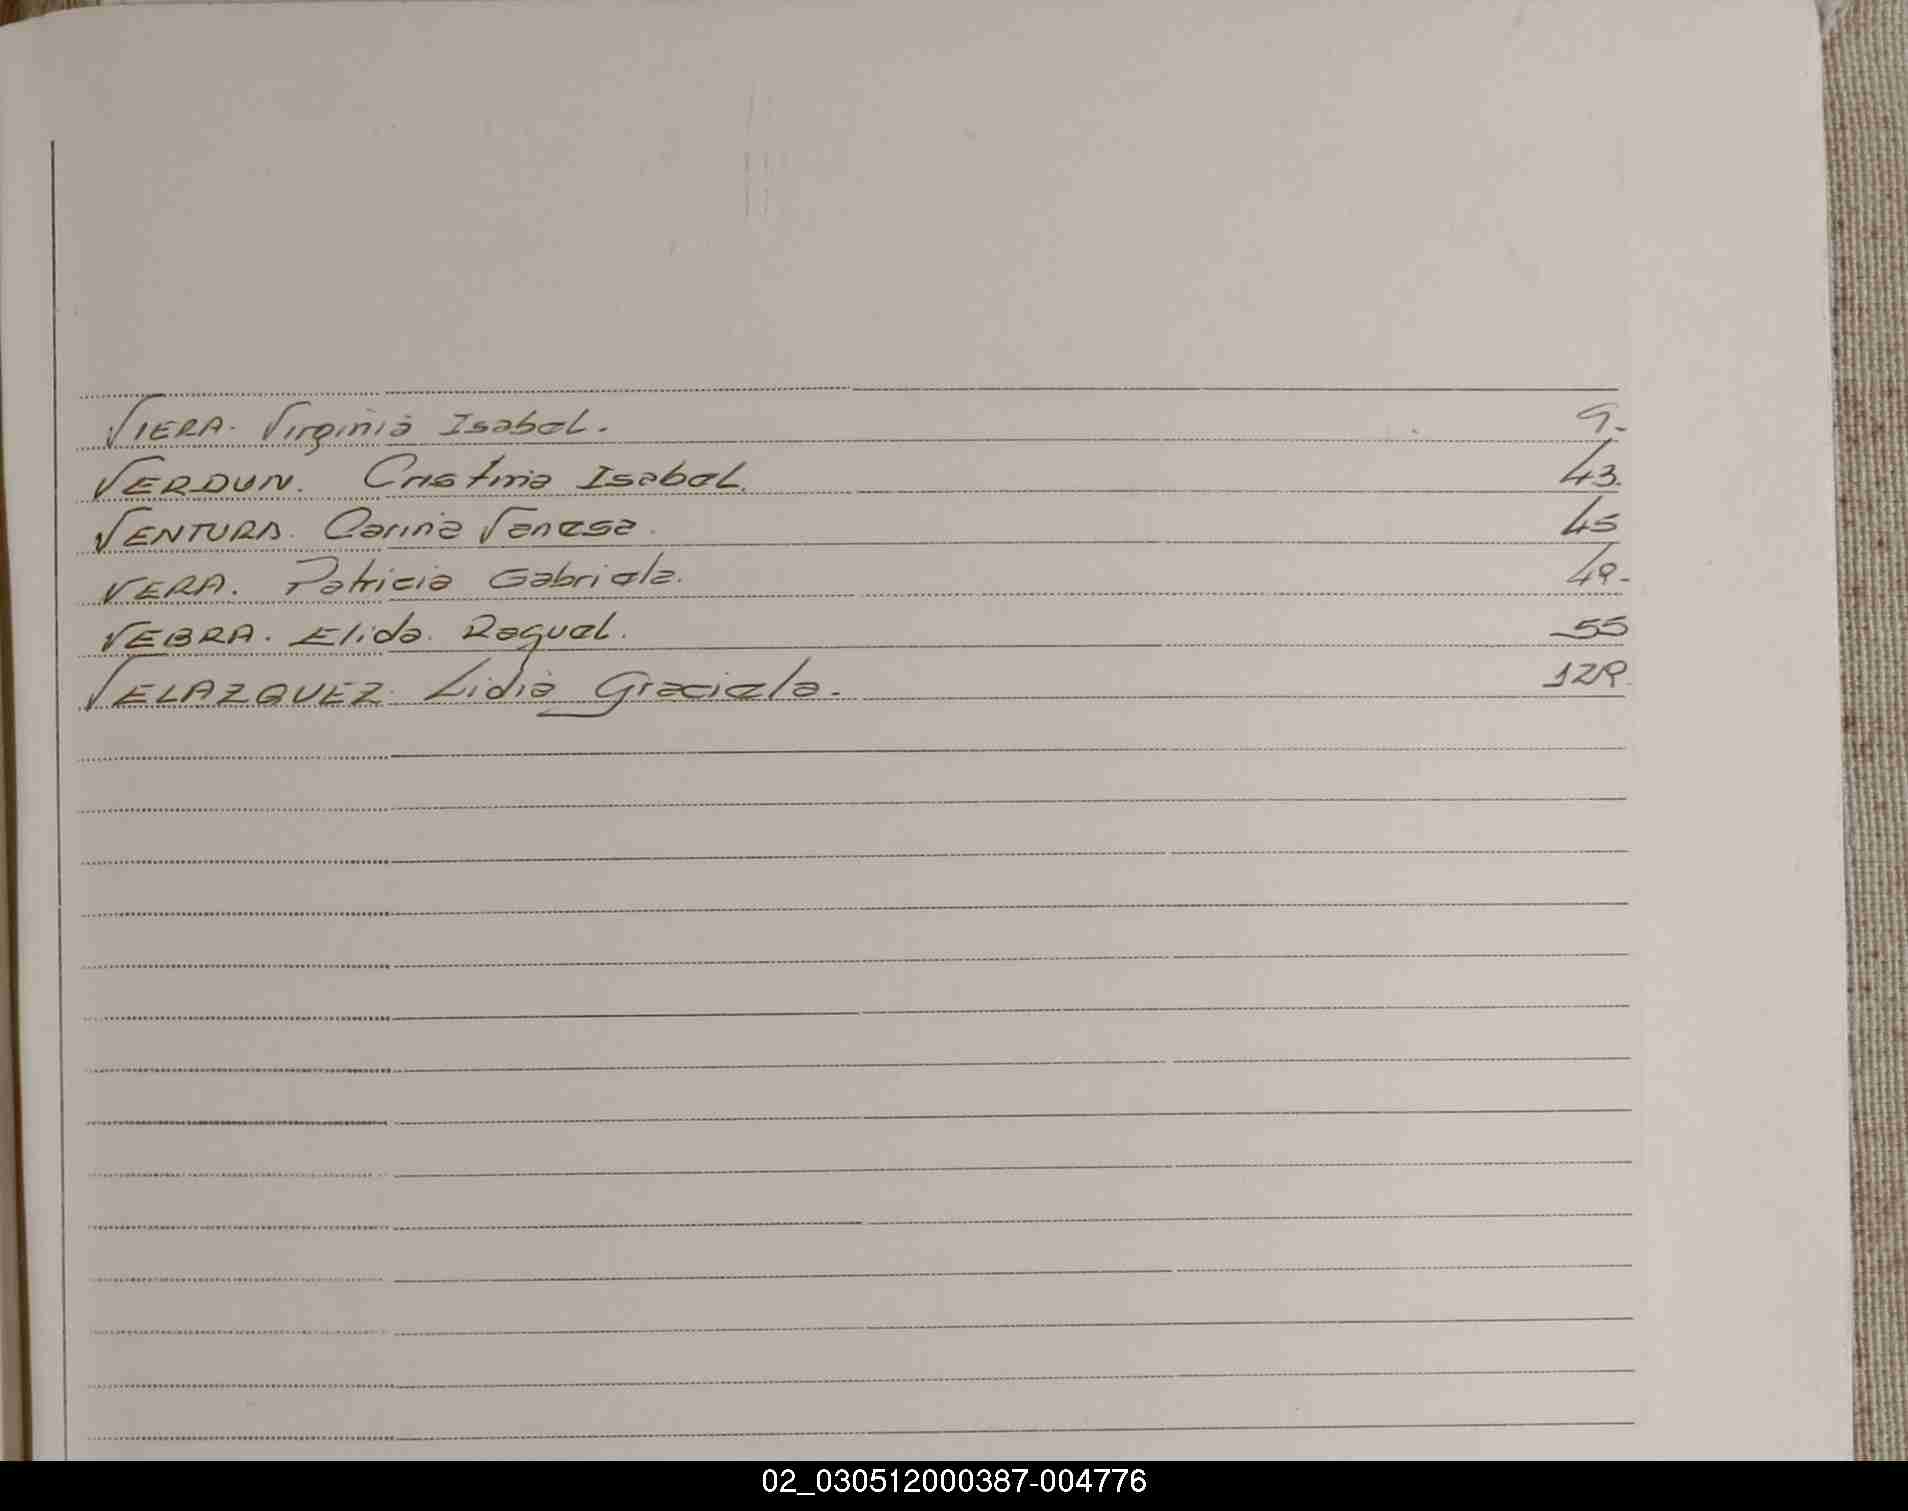 VIERA. Virginia Isabel. 9.
VERDUN. Cristina Isabel. 43.
VENTURA. Carina Vanesa. 45
VERA. Patricia Gabriela. 49.
VEBRA. Elida. Raquel. 55
VELAZQUEZ. Lidia Graciela.
02_030512000387-004776